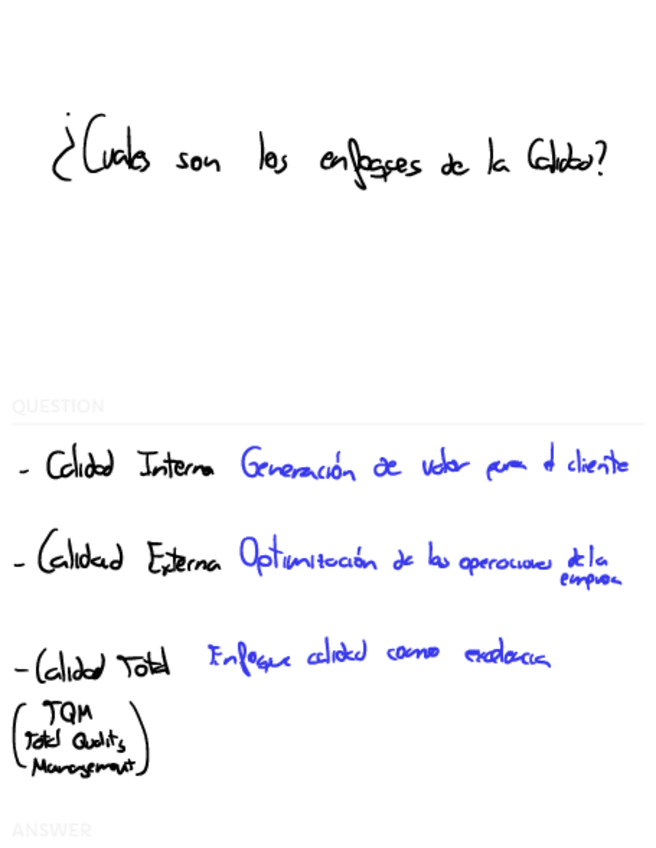 ¿Cuales son los enfoques de la Calidad?
QUESTION
- Calidad Interna Generación de valor para el cliente
- Calidad Externa Optimización de las operaciones de la
empresa
- Calidad Total Enfoque calidad como excelencia
(TQM
Total Quality
Management)
ANSWER